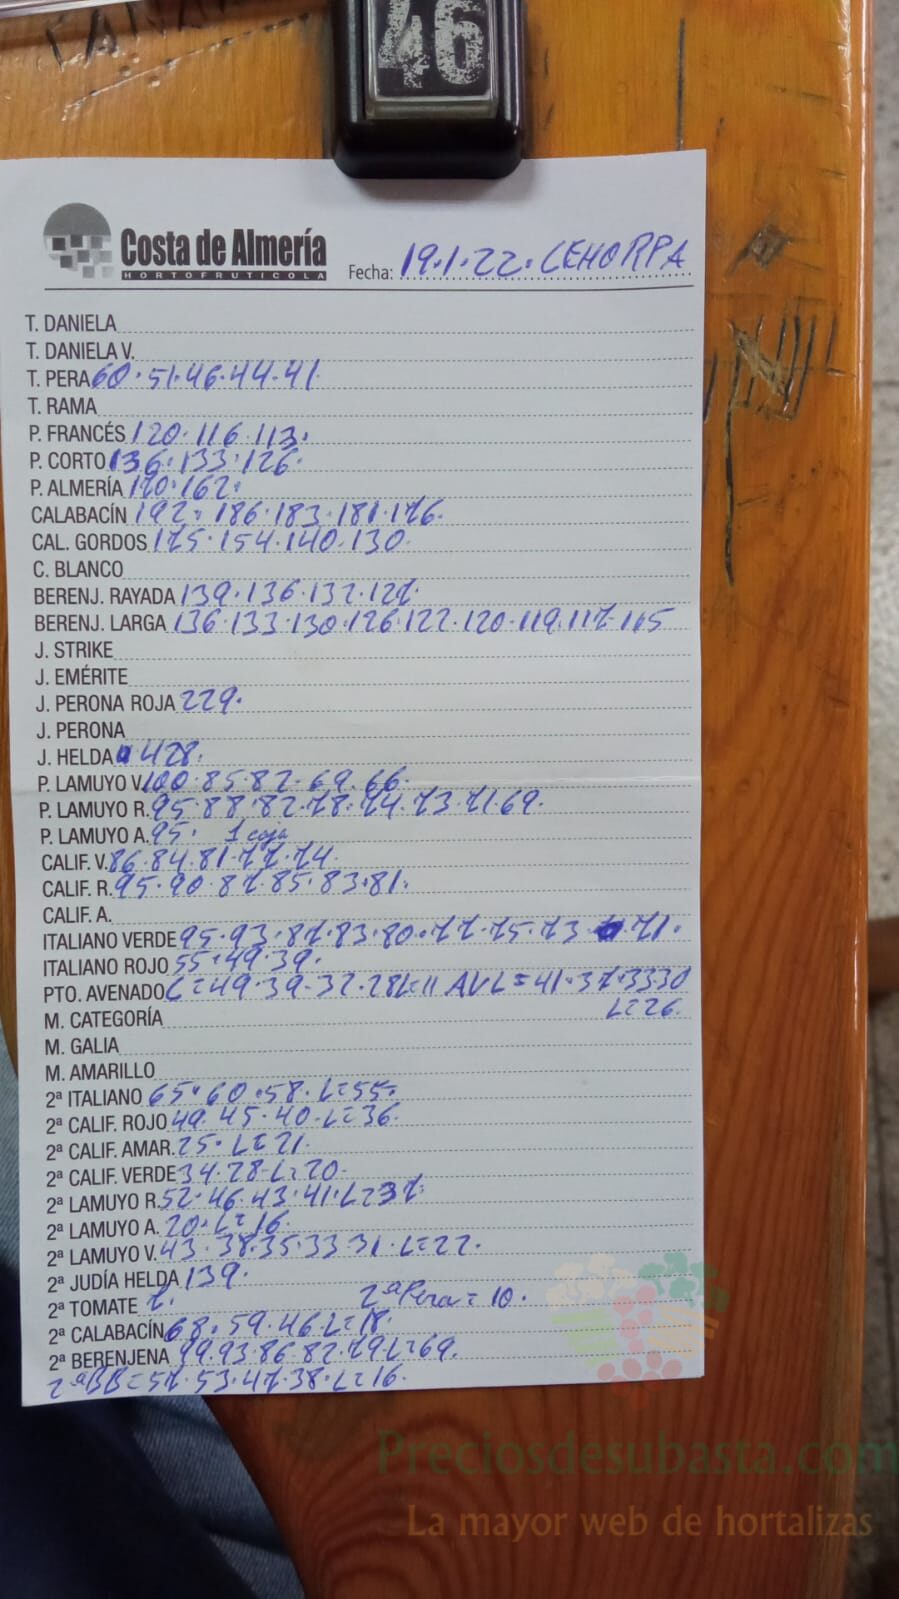 46
Costa de Almería
HORTOFRUTICOLA
Fecha: 19.1.22. CEHORPA
T. DANIELA
T. DANIELA V.
T. PERA 60.51.46.44.41.
T. RAMA
P. FRANCÉS 120.116.113.
P. CORTO 136.133.126.
P. ALMERÍA 170.162.
CALABACÍN 192.186.183.181.176.
CAL. GORDOS 175.154.140.130.
C. BLANCO
BERENJ. RAYADA 139.136.132.127.
BERENJ. LARGA 136.133.130.126.122.120.119.117.115
J. STRIKE
J. EMÉRITE
J. PERONA ROJA 229.
J. PERONA
J. HELDA 428.
P. LAMUYO V. 100.85.82.69.66.
P. LAMUYO R. 95.88.82.78.74.73.71.69.
P. LAMUYO A. 95. 1 caja
CALIF. V. 86.84.81.77.74.
CALIF. R. 95.90.87.85.83.81.
CALIF. A.
ITALIANO VERDE 95.93.87.83.80.77.75.73.71.
ITALIANO ROJO 55.49.39.
PTO. AVENADO C=49.39.32.28 L=11 AVL=41.37.33.30
L=26.
M. CATEGORÍA
M. GALIA
M. AMARILLO
2ª ITALIANO 65.60.58.L=55.
2ª CALIF. ROJO 49.45.40.L=36.
2ª CALIF. AMAR. 25.L=21.
2ª CALIF. VERDE 34.28.L=20.
2ª LAMUYO R. 52.46.43.41.L=37.
2ª LAMUYO A. 20.L=16.
2ª LAMUYO V. 43.38.35.33.31.L=22.
2ª JUDÍA HELDA 139.
2ª TOMATE 7. 2ª Pera = 10.
2ª CALABACÍN 68.59.46.L=18.
2ª BERENJENA 99.93.86.82.79.L=69.
2ªBB=57.53.47.38.L=16.
Preciosdesubasta.com
La mayor web de hortalizas